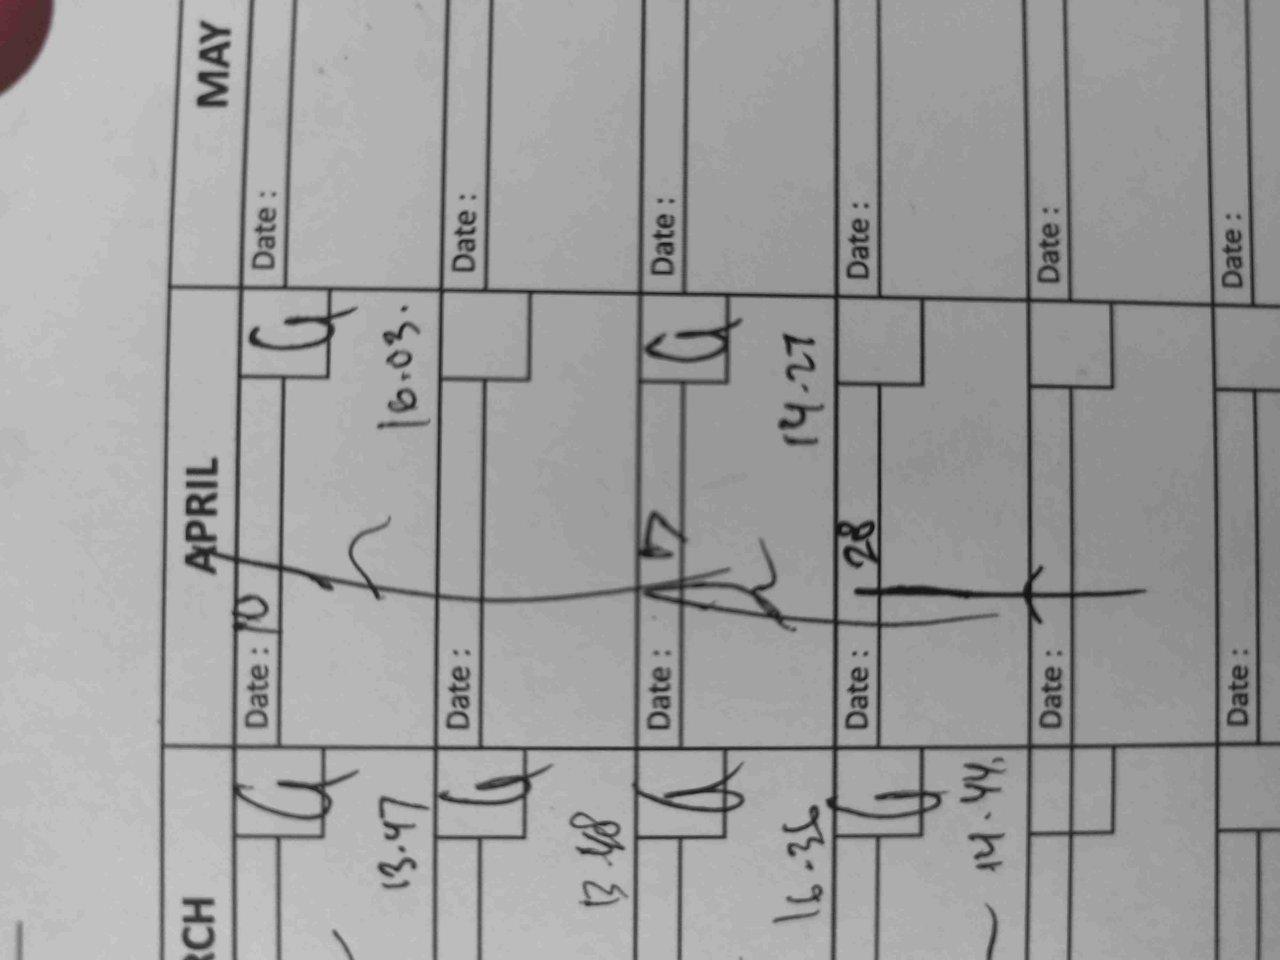 MARCH APRIL MAY
Date : 10
Date :
13.47
16.03.
Date :
Date :
13.48
Date : 17
Date :
16.36
14.27
Date : 28
Date :
14.44.
Date :
Date :
Date :
Date :